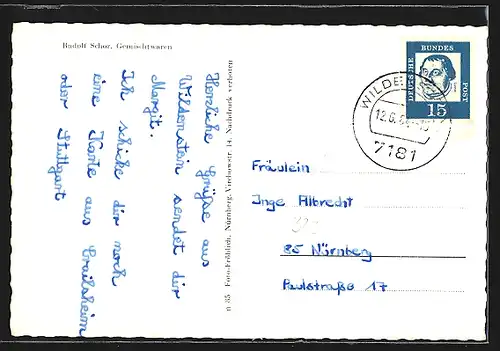 Rudolf Schor, Gemischtwaren
Herzliche Grüße aus
Wildenstein sendet dir
Margit.
Ich schicke dir noch
eine Karte aus Crailsheim
oder Stuttgart
n 85 Foto-Fröhlich, Nürnberg, Virchowstr. 14. Nachdruck verboten
DEUTSCHE
BUNDES
POST
15
WILDE
12.6.
7181
Fräulein
Inge Albrecht
85 Nürnberg
Paulstraße 17